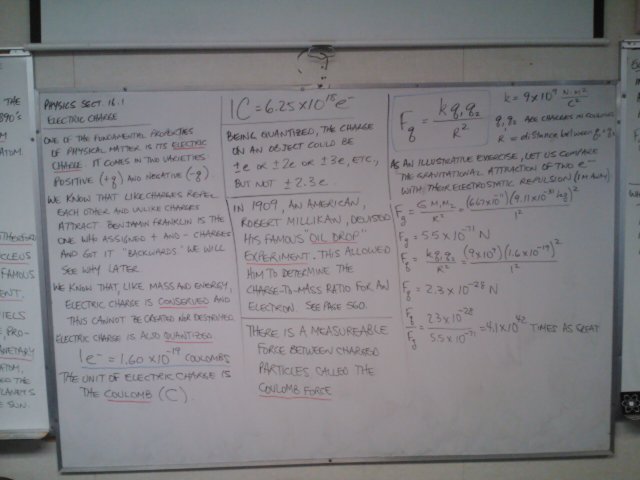 PHYSICS SECT. 16.1
ELECTRIC CHARGE
ONE OF THE FUNDAMENTAL PROPERTIES
OF PHYSICAL MATTER IS ITS ELECTRIC
CHARGE. IT COMES IN TWO VARIETIES
POSITIVE (+q) AND NEGATIVE (-q).
WE KNOW THAT LIKE CHARGES REPEL
EACH OTHER AND UNLIKE CHARGES
ATTRACT. BENJAMIN FRANKLIN IS THE
ONE WHO ASSIGNED + AND - CHARGES
AND GOT IT "BACKWARDS." WE WILL
SEE WHY LATER.
WE KNOW THAT, LIKE MASS AND ENERGY,
ELECTRIC CHARGE IS CONSERVED AND
THUS CANNOT BE CREATED NOR DESTROYED.
ELECTRIC CHARGE IS ALSO QUANTIZED
1e⁻ = 1.60 x 10⁻¹⁹ COULOMBS
THE UNIT OF ELECTRIC CHARGE IS
THE COULOMB (C).
1C = 6.25 x 10¹⁸ e⁻
BEING QUANTIZED, THE CHARGE
ON AN OBJECT COULD BE
±1e OR ±2e OR ±3e, ETC.,
BUT NOT ±2.3e.
IN 1909, AN AMERICAN,
ROBERT MILLIKAN, DEVISED
HIS FAMOUS "OIL DROP"
EXPERIMENT. THIS ALLOWED
HIM TO DETERMINE THE
CHARGE-TO-MASS RATIO FOR AN
ELECTRON. SEE PAGE 560.
THERE IS A MEASUREABLE
FORCE BETWEEN CHARGED
PARTICLES CALLED THE
COULOMB FORCE
F_q = kq₁q₂ / R²
k = 9x10⁹ N·M²/C²
q₁q₂ ARE CHARGES IN COULOMBS
R = distance between q₁ & q₂
AS AN ILLUSTRATIVE EXERCISE, LET US COMPARE
THE GRAVITATIONAL ATTRACTION OF TWO e⁻
WITH THEIR ELECTROSTATIC REPULSION (1M AWAY)
F_g = G M₁M₂ / R² = (6.67x10⁻¹¹)(9.11x10⁻³¹ kg)² / 1²
F_g = 5.5 x 10⁻⁷¹ N
F_q = kq₁q₂ / R² = (9x10⁹)(1.6x10⁻¹⁹)² / 1²
F_q = 2.3 x 10⁻²⁸ N
F_q / F_g = 2.3 x 10⁻²⁸ / 5.5 x 10⁻⁷¹ = 4.1 x 10⁴² TIMES AS GREAT
THE
ATOM.
FAMOUS